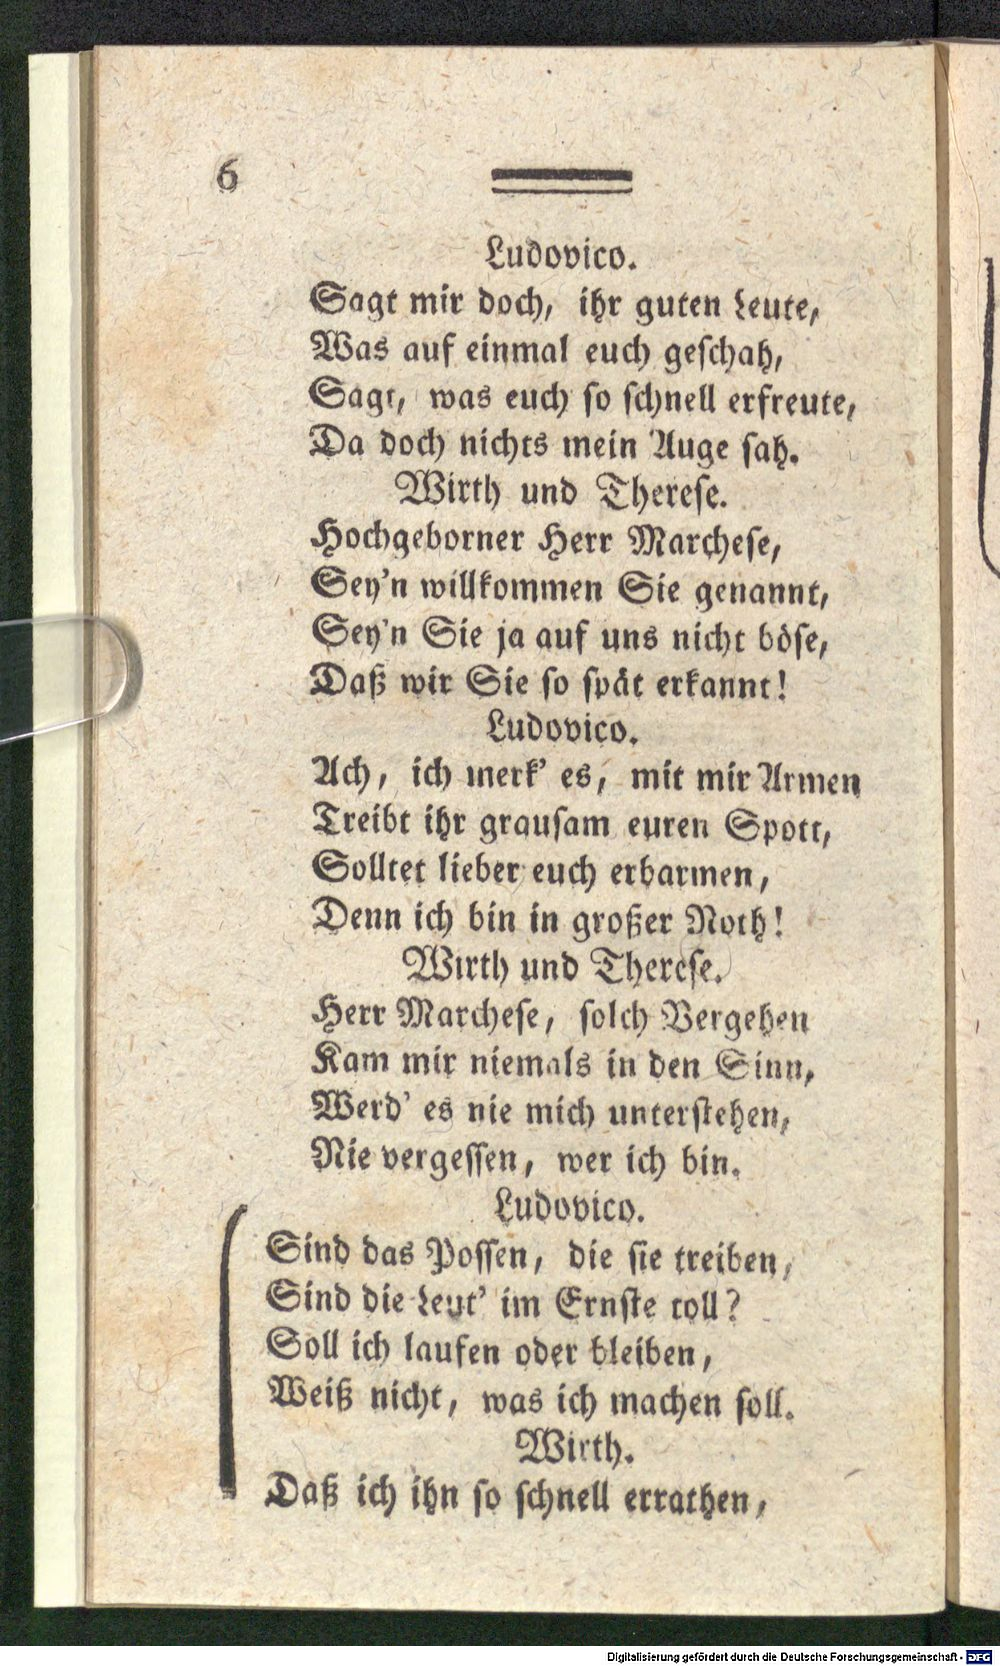 6
Ludovico.
Sagt mir doch, ihr guten Leute,
Was auf einmal euch geschah,
Sagt, was euch so schnell erfreute,
Da doch nichts mein Auge sah.
Wirth und Therese.
Hochgeborner Herr Marchese,
Sey'n willkommen Sie genannt,
Sey'n Sie ja auf uns nicht böse,
Daß wir Sie so spät erkannt!
Ludovico.
Ach, ich merk' es, mit mir Armen
Treibt ihr grausam euren Spott,
Solltet lieber euch erbarmen,
Denn ich bin in großer Noth!
Wirth und Therese.
Herr Marchese, solch Vergehen
Kam mir niemals in den Sinn,
Werd' es nie mich unterstehen,
Nie vergessen, wer ich bin.
Ludovico.
Sind das Possen, die sie treiben,
Sind die Leut' im Ernste toll?
Soll ich laufen oder bleiben,
Weiß nicht, was ich machen soll.
Wirth.
Daß ich ihn so schnell errathen,
Digitalisierung gefördert durch die Deutsche Forschungsgemeinschaft - DFG